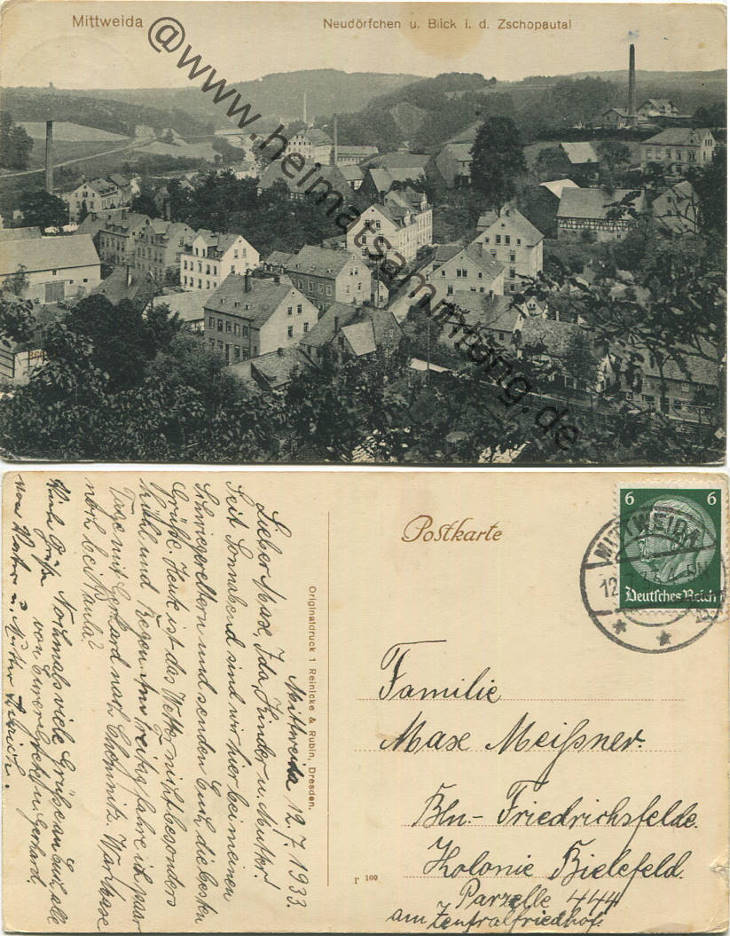 Mittweida
Neudörfchen u. Blick i. d. Zschopautal
@www.heimatsammlung.de
Postkarte
6 6
Deutsches Reich
MITTWEIDA
12
Originaldruck 1 Reinicke & Rubin, Dresden.
r 109
Familie
Max Meißner.
Bln.- Friedrichsfelde.
Kolonie Bielefeld.
Parzelle 444
am Zentralfriedhof.
Mittweida 12.7.1933.
Lieber Max, Ida, Kinder u. Mutter!
Seit Sonnabend sind wir hier bei meinen
Schwiegereltern und senden Euch die besten
Grüße. Heute ist das Wetter nicht besonders
kühl und Regen. Am Freitag fahre ich paar
Tage mit Gerhard nach Chemnitz. War Max
noch bei Paula?
Nochmals viele Grüße an Euch alle
von Eurer Gretel u. Gerhard.
Viele Grüße
von Vater u. Mutter